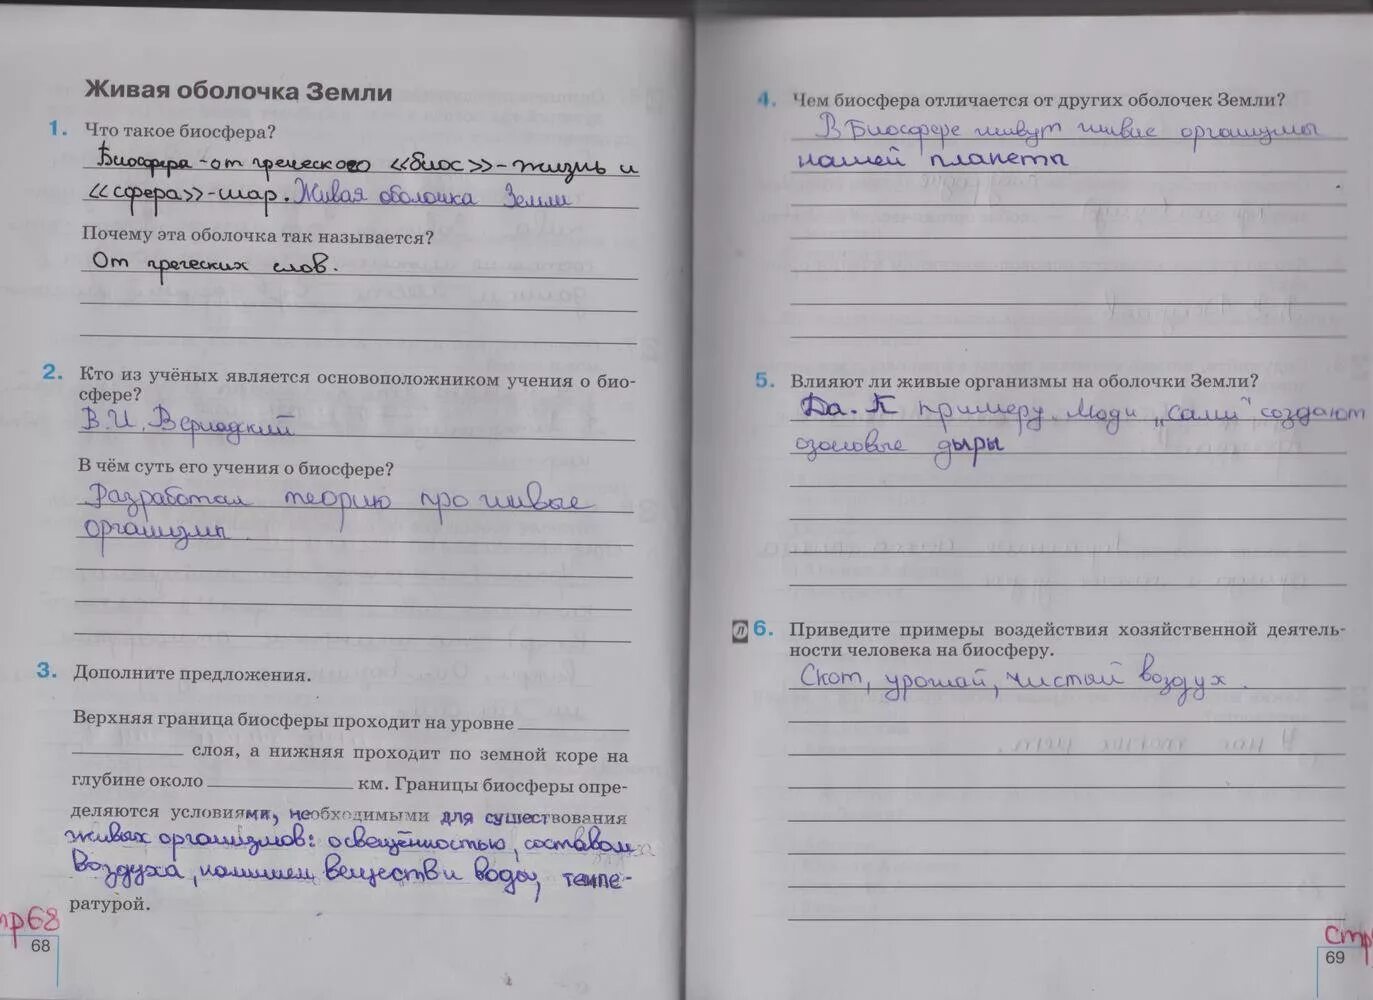 Живая оболочка Земли
1. Что такое биосфера?
Биосфера - от греческого «биос» - жизнь и
«сфера» - шар. Живая оболочка Земли
Почему эта оболочка так называется?
От греческих слов.
2. Кто из учёных является основоположником учения о био-
сфере?
В.И. Вернадский
В чём суть его учения о биосфере?
Разработал теорию про живые
организмы.
3. Дополните предложения.
Верхняя граница биосферы проходит на уровне
слоя, а нижняя проходит по земной коре на
глубине около км. Границы биосферы опре-
деляются условиями, необходимыми для существования
живых организмов: освещённостью, составом
воздуха, наличием веществ и воды, темпе-
ратурой.
тр68
68
4. Чем биосфера отличается от других оболочек Земли?
В Биосфере живут живые организмы
нашей планеты
5. Влияют ли живые организмы на оболочки Земли?
Да. К примеру люди „сами" создают
озоновые дыры
Л 6. Приведите примеры воздействия хозяйственной деятель-
ности человека на биосферу.
Скот, урожай, чистый воздух.
Стр
69